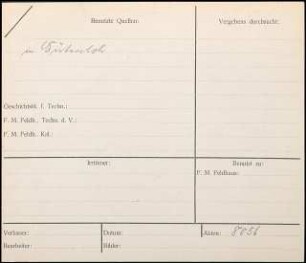 Benutzte Quellen:
Vergebens durchsucht:
Geschichtsbl. f. Techn.:
F. M. Feldh., Techn. d. V.:
F. M. Feldh. Kol.:
Irrtümer:
Benutzt zu:
F. M. Feldhaus:
Verfasser:
Datum:
Akten: 8056
Bearbeiter:
Bilder: